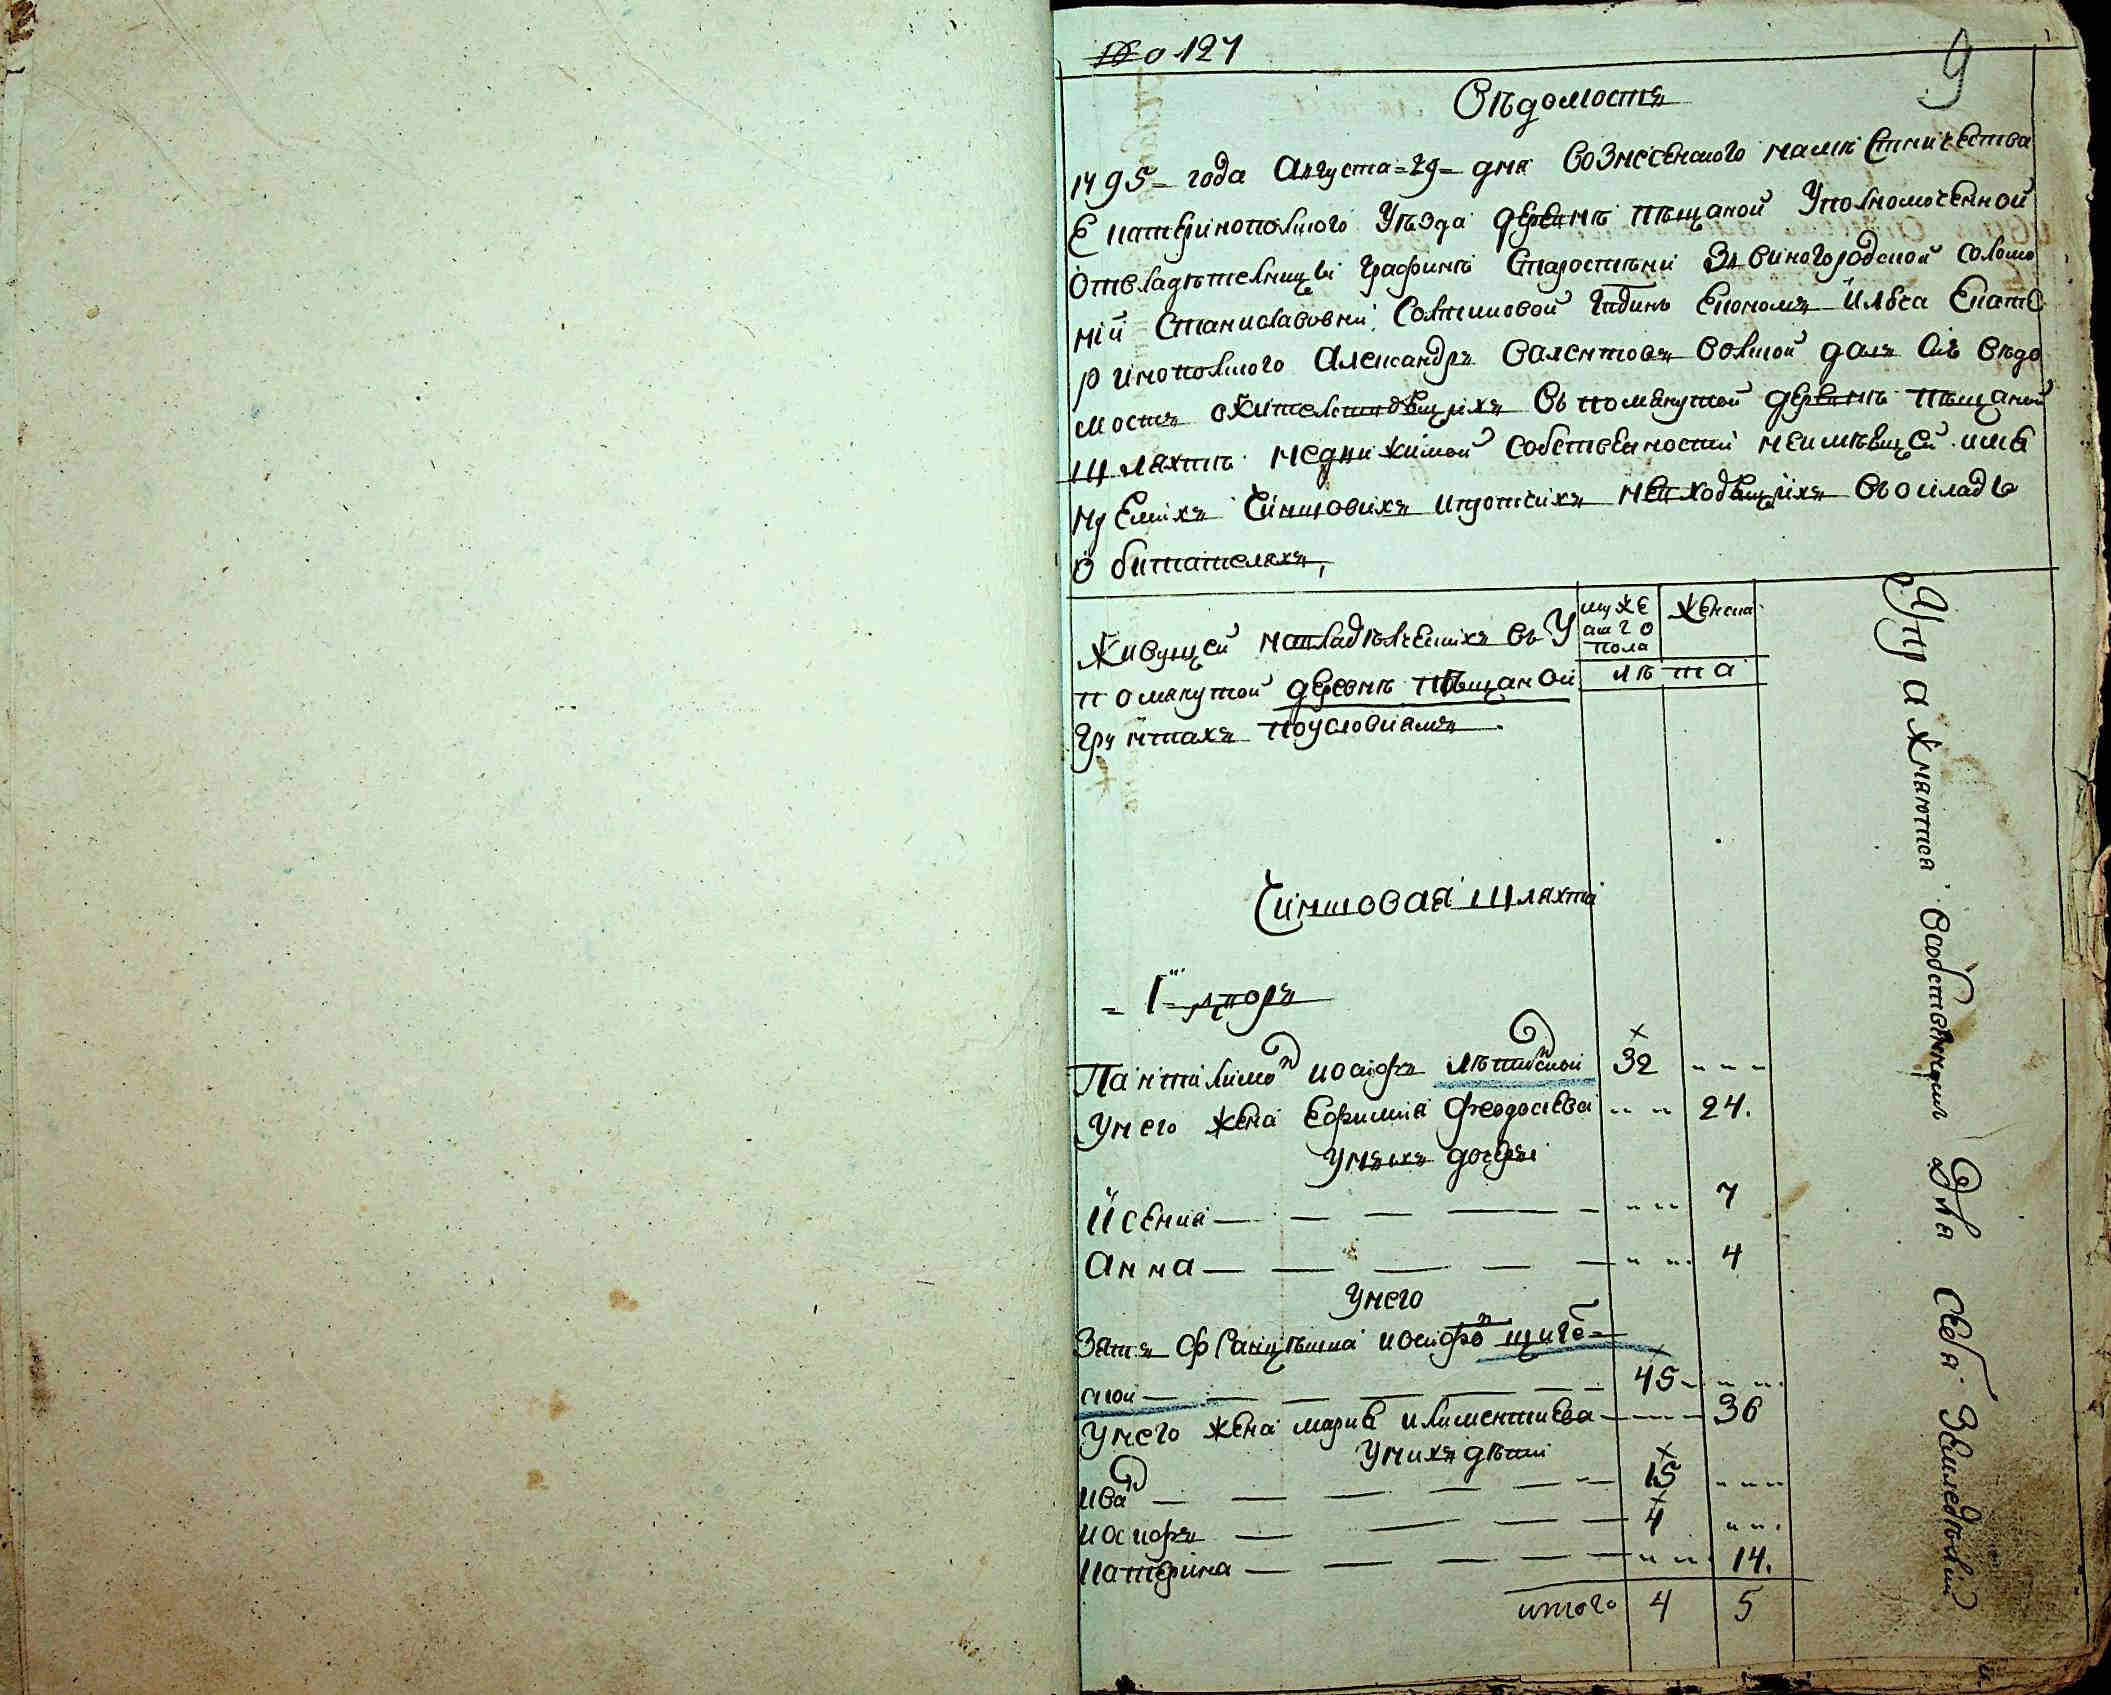 о 127
9
Вѣдомостъ
1795 года Августа 29 дня Вознесенского намѣстничества
Екатеринопольского Уѣзда деревнѣ пѣщаной Уполномоченной
Отвладѣтелницы Графинѣ Старостѣни Звѣнигородской Соломо
ній Станиславовни Солтиковой Економъ Илвса Екате
ринопольского Александръ Валентовъ далъ Сіѣ вѣдо
мость ожителствующіхъ въ помянутой деревнѣ пѣщаной
Шляхтѣ недвижімой собственности неимѣющей име
нуемихъ Чиншовихъ ипротчихъ невходящіхъ въ окладъ
Обитателяхъ,
Живущей навладѣлческихъ въ У
помянутой деревнѣ пѣщаной
грунтахъ поусловиямъ
муже
ско го
пола
женска
лѣ та
Чиншовая Шляхта
= 1й дворъ
Пантилимон иосифъ 32
Унего жена Евфимиа Феодосіева 24.
Унѣихъ дочери
Ксениа 7
Анна 4
Унего
Зять Францѣшка иосифов щигел=
скои 45
Унего жена мария климентиева 36
Унихъ дѣти
иван 15
иосифъ 4
катерина 14.
итого 4 5
Упражняются Особственним Для Себя Земледѣлій